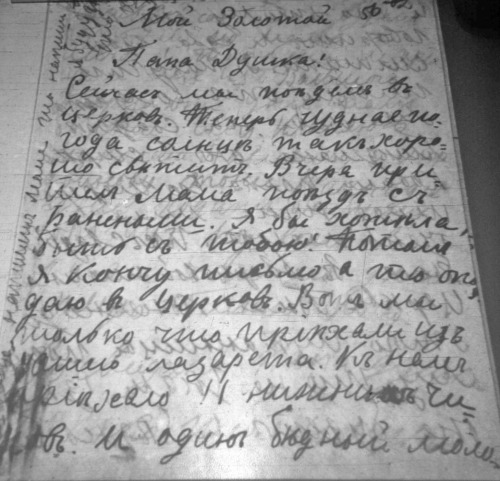 Мой Золотой
Папа Душка!
Сейчасъ мы пойдемъ въ
церковь. Теперь чудная по-
года солнце такъ хоро-
шо свѣтитъ. Вчера при-
шелъ Мама поѣздъ съ
ранеными. Я бы хотѣла
быть съ тобою! Потомъ
я кончу письмо а то опо-
даю в церковь. Вотъ мы
только что приѣхали изъ
нашего лазарета. Къ намъ
приѣхало 11 нижнихъ чи-
новъ. И одинъ бѣдный моло-